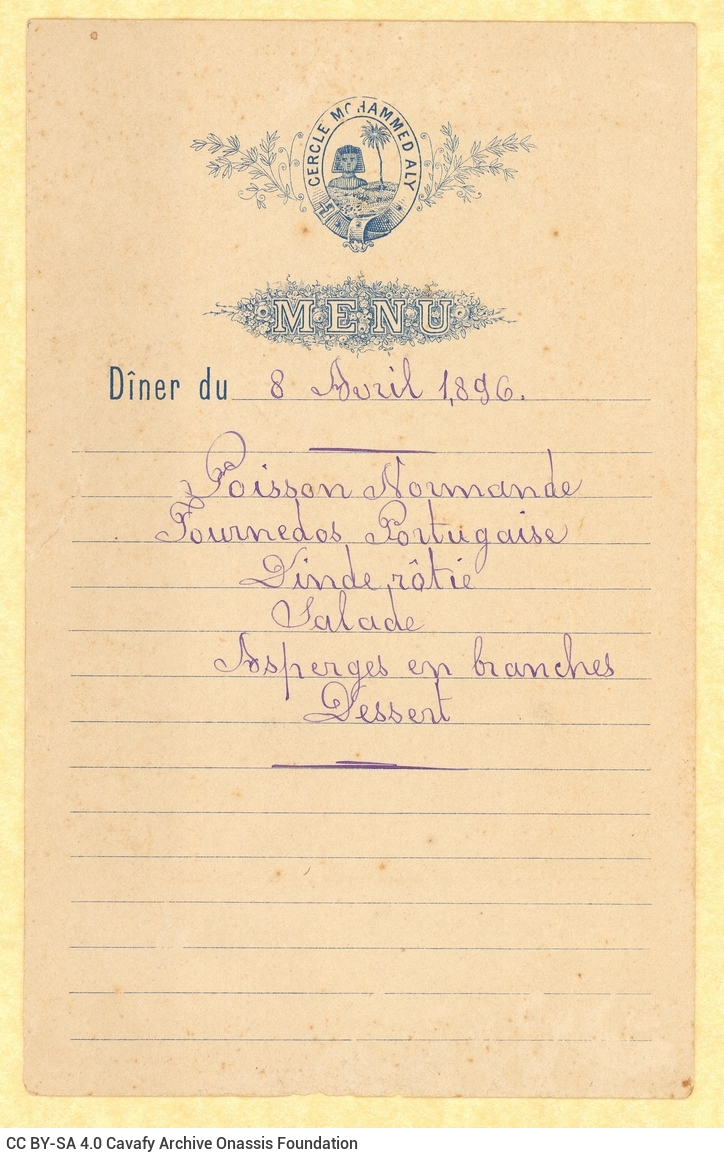 CERCLE MOHAMMED ALY
MENU
Dîner du 8 Avril 1,896.
Poisson Normande
Tournedos Portugaise
Dinde rôtie
Salade
Asperges en branches
Dessert
CC BY-SA 4.0 Cavafy Archive Onassis Foundation